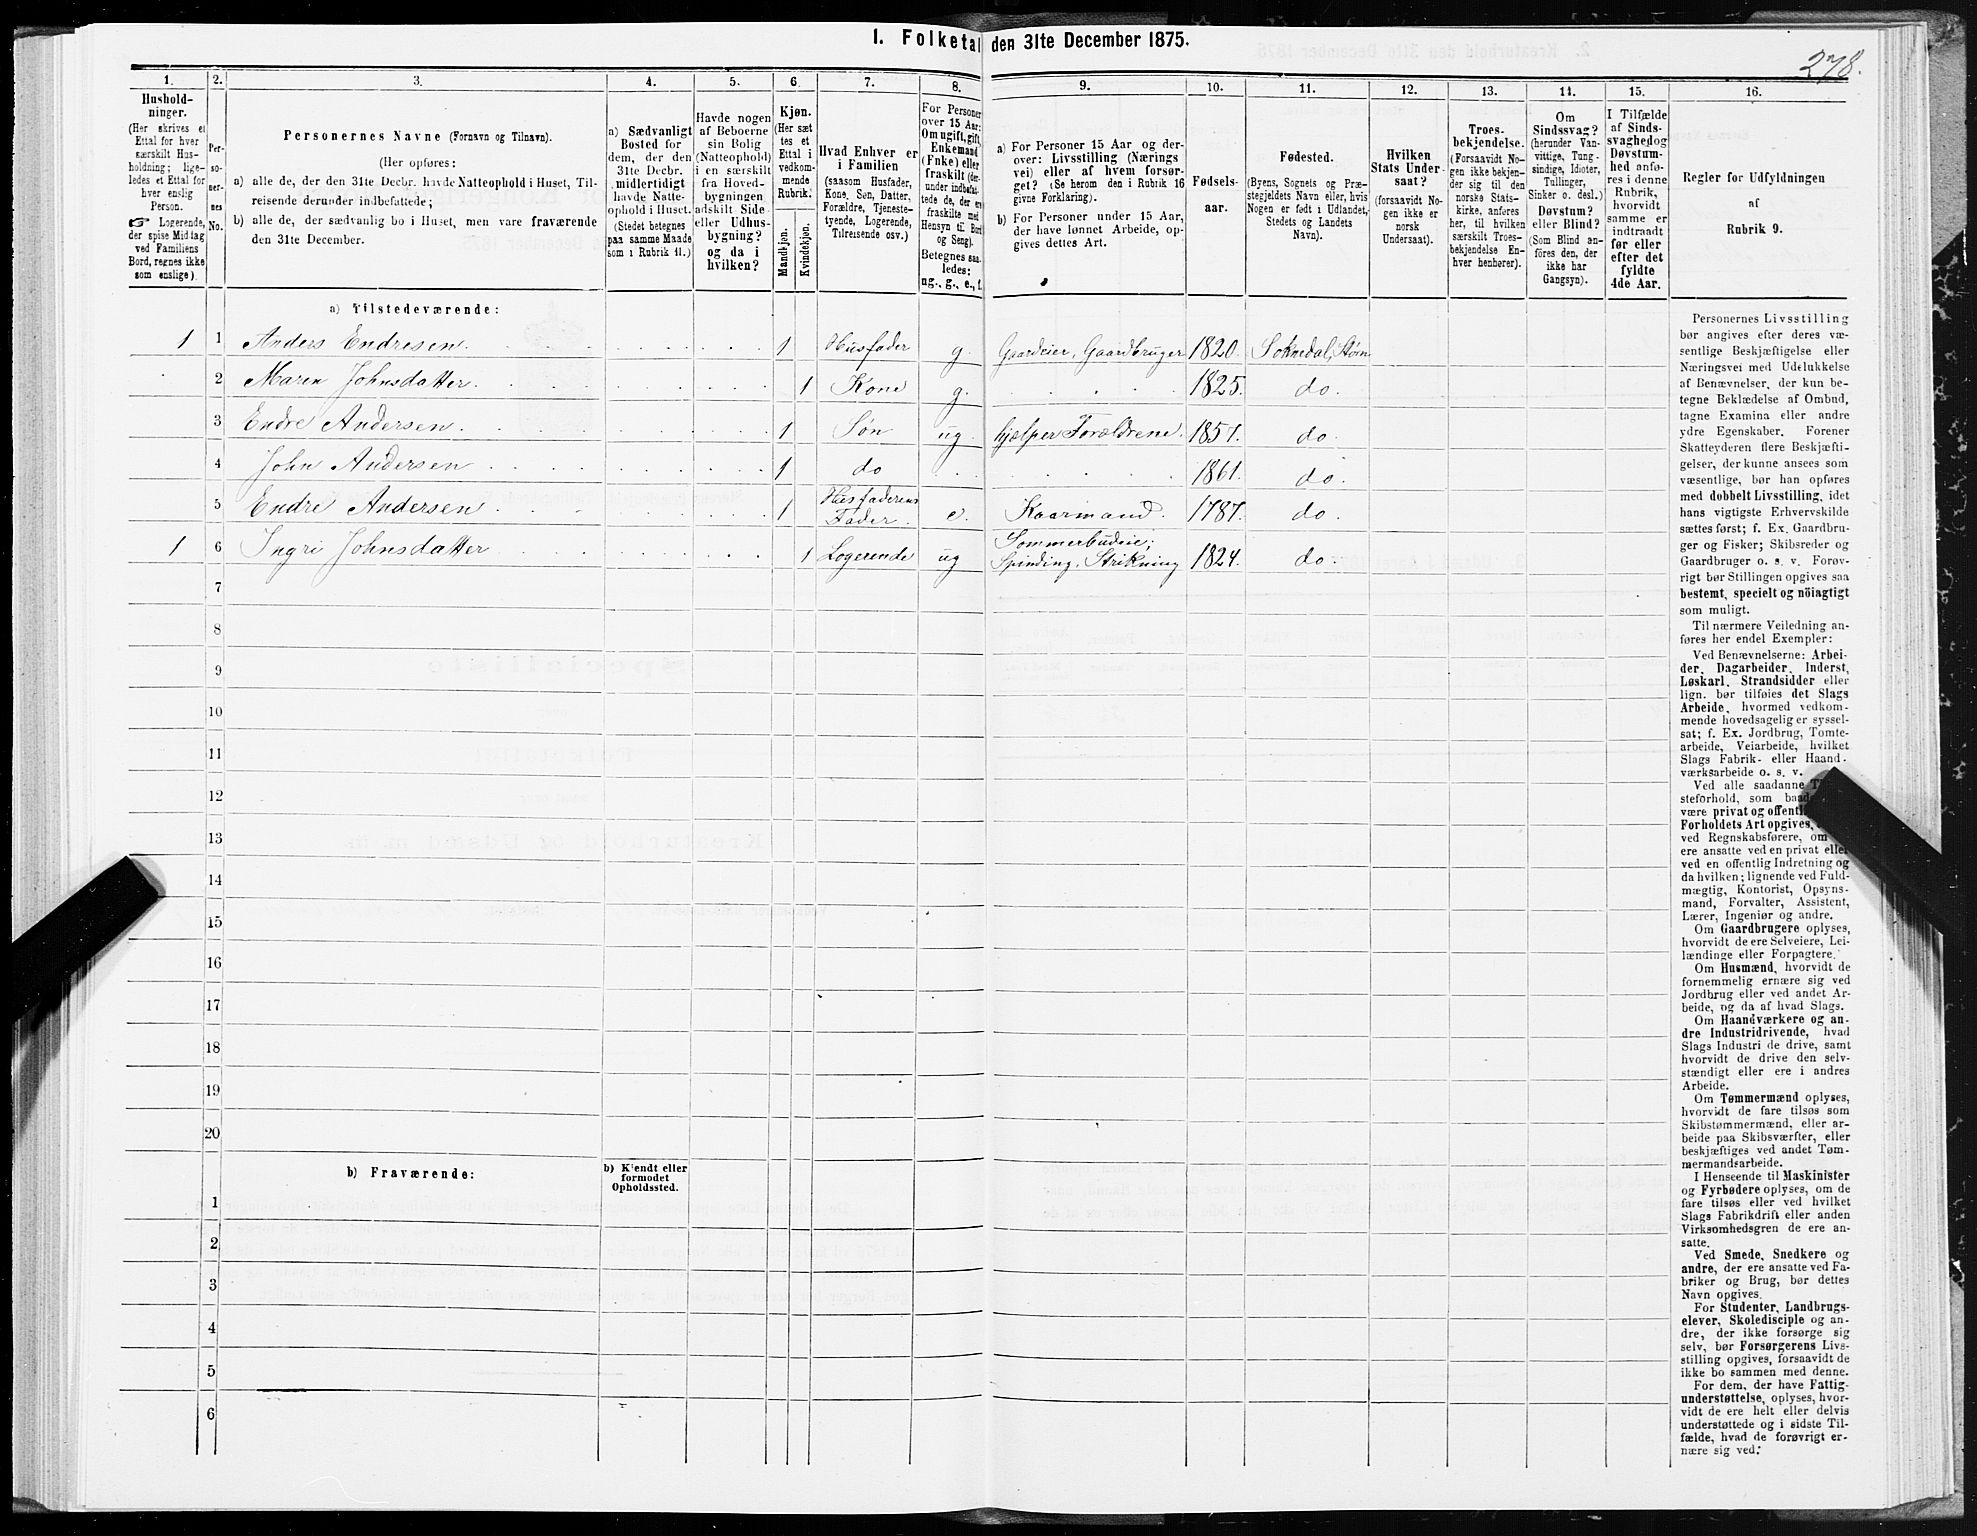 1. Folketal den 31te December 1875.
278.
1.
2.
3.
4.
5.
6.
7.
8.
9.
10.
11.
12.
13.
14.
15.
16.
Hushold-
ninger.
(Her skrives et
Ettal for hver
særskilt Hus-
holdning; lige-
ledes et Ettal for
hver enslig
Person.
☞ Logerende,
der spise Middag
ved Familiens
Bord, regnes ikke
som enslige).
Per-
so-
ner-
nes
No.
Personernes Navne (Fornavn og Tilnavn).
(Her opføres:
a) alle de, der den 31te Decbr. havde Natteophold i Huset, Til-
reisende derunder indbefattede;
b) alle de, der sædvanlig bo i Huset, men vare fraværende
den 31te December.
a) Sædvanligt
Bosted for
dem, der den
31te Decbr.
midlertidigt
havde Natte-
ophold i Huset.
(Stedet betegnes
paa samme Maade
som i Rubrik 11.)
Havde nogen
af Beboerne
sin Bolig
(Natteophold)
i en særskilt
fra Hoved-
bygningen
adskilt Side-
eller Udhus-
bygning?
og da i
hvilken?
Kjøn.
(Her sæt-
tes et
Ettal i
vedkom-
mende
Rubrik.)
Mandkjøn.
Kvindekjøn.
Hvad Enhver er
i Familien
(saasom Husfader,
Kone, Søn, Datter,
Forældre, Tjeneste-
tyende, Logerende,
Tilreisende osv.)
For Personer
over 15 Aar:
Om ugift, gift,
Enkemand
(Enke) eller
fraskilt (der-
under indbefat-
tede de, der ere
fraskilte med
Hensyn til Bord
og Seng).
Betegnes saa-
ledes:
ug., g., e., f.
a) For Personer 15 Aar og der-
over: Livsstilling (Nærings-
vei) eller af hvem forsør-
get? (Se herom den i Rubrik 16
givne Forklaring).
b) For Personer under 15 Aar,
der have lønnet Arbeide, op-
gives dettes Art.
Fødsels-
aar.
Fødested.
(Byens, Sognets og Præ-
stegjeldets Navn eller, hvis
Nogen er født i Udlandet,
Stedets og Landets
Navn).
Hvilken
Stats Under-
saat?
(forsaavidt No-
gen ikke er
norsk
Undersaat).
Troes-
bekjendelse.
(Forsaavidt No-
gen ikke bekjen-
der sig til den
norske Stats-
kirke, anføres
her, til hvilken
særskilt Troes-
bekjendelse En-
hver henhører).
Om
Sindssvag?
(herunder Van-
vittige, Tung-
sindige, Idioter,
Tullinger,
Sinker o. desl.)
Døvstum?
eller Blind?
(Som Blind an-
føres den, der
ikke har
Gangsyn).
I Tilfælde
af Sinds-
svaghed og
Døvstum-
hed anfø-
res i denne
Rubrik,
hvorvidt
samme er
indtraadt
før eller
efter det
fyldte
4de Aar.
Regler for Udfyldningen
af
Rubrik 9.
a) Tilstedeværende:
1 1 Anders Endresen. 1 Husfader g. Gaardeier, Gaardbruger 1820. Soknedal, Støren
2 Maren Johnsdatter. 1 Kone g. 1825. do.
3 Endre Andersen. 1 Søn ug. hjælper Forældrene. 1857. do.
4 John Andersen 1 do 1861. do.
5 Endre Andersen 1 Husfaderens Fader. e. Kaarmand. 1787. do.
1 6 Ingri Johnsdatter 1 Logerende ug Sommerbudeie; Spinding, Strikning 1824. do.
7
8
9
10
11
12
13
14
15
16
17
18
19
20
b) Fraværende:
b) Kjendt eller
formodet
Opholdssted.
1
2
3
4
5
6
Personernes Livsstilling
bør angives efter deres væ-
sentlige Beskjæftigelse eller
Næringsvei med Udelukkelse
af Benævnelser, der kun be-
tegne Beklædelse af Ombud,
tagne Examina eller andre
ydre Egenskaber. Forener
Skatteyderen flere Beskjæfti-
gelser, der kunne ansees som
væsentlige, bør han opføres
med dobbelt Livsstilling, idet
hans vigtigste Erhvervskilde
sættes først; f. Ex. Gaardbru-
ger og Fisker; Skibsreder og
Gaardbruger o. s. v. Forøv-
rigt bør Stillingen opgives saa
bestemt, specielt og nöiagtigt
som muligt.
Til nærmere Veiledning an-
føres her endel Exempler:
Ved Benævnelserne: Arbei-
der, Dagarbeider, Inderst,
Løskarl, Strandsidder eller
lign. bør tilføies det Slags
Arbeide, hvormed vedkom-
mende hovedsagelig er syssel-
sat; f. Ex. Jordbrug, Tomte-
arbeide, Veiarbeide, hvilket
Slags Fabrik- eller Haand-
værksarbeide o. s. v.
Ved alle saadanne
steforhold, som
være privat og
Forholdets Art opgives,
ved Regnskabsførere, om
ere ansatte ved en privat eller
ved en offentlig Indretning og
da hvilken; lignende ved Fuld-
mægtig, Kontorist, Opsyns-
mand, Forvalter, Assistent,
Lærer, Ingeniør og andre.
Om Gaardbrugere oplyses,
hvorvidt de ere Selveiere, Lei-
lændinge eller Forpagtere.
Om Husmænd, hvorvidt de
fornemmelig ernære sig ved
Jordbrug eller ved andet Ar-
beide, og da af hvad Slags.
Om Haandværkere og an-
dre Industridrivende, hvad
Slags Industri de drive, samt
hvorvidt de drive den selv-
stændigt eller ere i andres
Arbeide.
Om Tømmermænd oplyses,
hvorvidt de fare tilsøs som
Skibstømmermænd, eller ar-
beide paa Skibsværfter, eller
beskjæftiges ved andet Tøm-
mermandsarbeide.
I Henseende til Maskinister
og Fyrbødere oplyses, om de
fare tilsøs eller ved hvilket
Slags Fabrikdrift eller anden
Virksomhedsgren de ere an-
satte.
Ved Smede, Snedkere og
andre, der ere ansatte ved Fa-
briker og Brug, bør dettes
Navn opgives.
For Studenter, Landbrugs-
elever, Skoledisciple og an-
dre, der ikke forsørge sig
selv, bør Forsørgerens Livs-
stilling opgives, forsaavidt de
ikke bo sammen med denne.
For dem, der have Fattig-
understøttelse, oplyses, hvor-
vidt de ere helt eller delvis
understøttede og i sidste Til-
fælde, hvad de forøvrigt er-
nære sig ved.